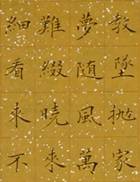 教墜抛家
夢随風萬
難綴曉來
細看來不